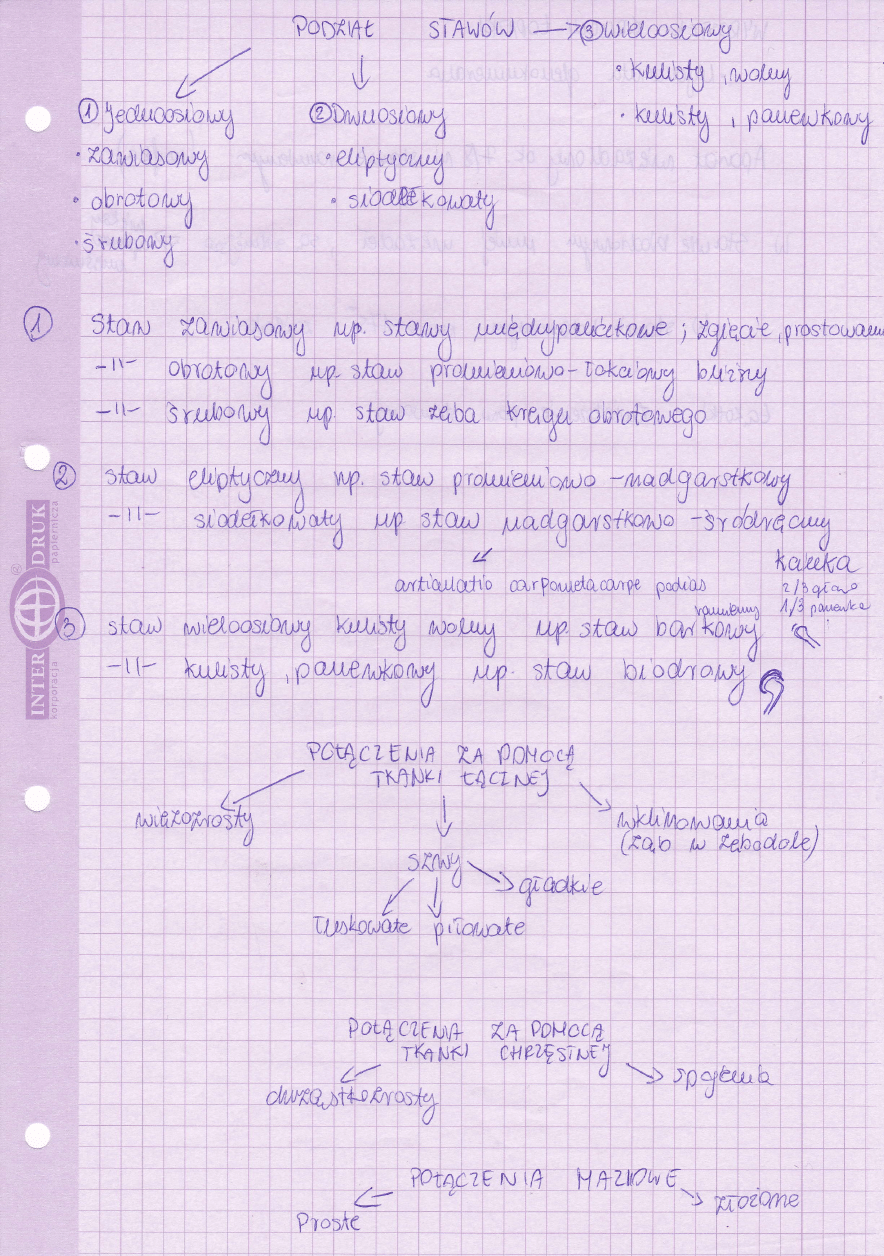 PODZIAŁ STAWÓW → ③ wieloosiowy
• kulisty, wolny
• kulisty, panewkowy
① Jednoosiowy
• zawiasowy
• obrotowy
• śrubowy
② Dwuosiowy
• eliptyczny
• siodełkowaty
① Staw zawiasowy np. stawy międzypaliczkowe; zgięcie, prostowanie
-11- obrotowy np. staw promieniowo-łokciowy bliższy
-11- śrubowy np. staw zęba kręgu obrotowego
② staw eliptyczny np. staw promieniowo-nadgarstkowy
-11- siodełkowaty np staw nadgarstkowo-śródręczny
articulatio carpometacarpe
kulka
2/3 głowa
1/3 panewka
ramienny
③ staw wieloosiowy kulisty wolny np. staw barkowy
-11- kulisty, panewkowy np. staw biodrowy
POŁĄCZENIA ZA POMOCĄ
TKANKI ŁĄCZNEJ
więzozrosty
wklinowania
(ząb w zębodole)
szwy
gładkie
łuskowate piłowate
POŁĄCZENIA ZA POMOCĄ
TKANKI CHRZĘSTNEJ
chrząstkozrosty
spojenia
POŁĄCZENIA MAZIOWE
Proste
złożone
INTER DRUK
korporacja papiernicza